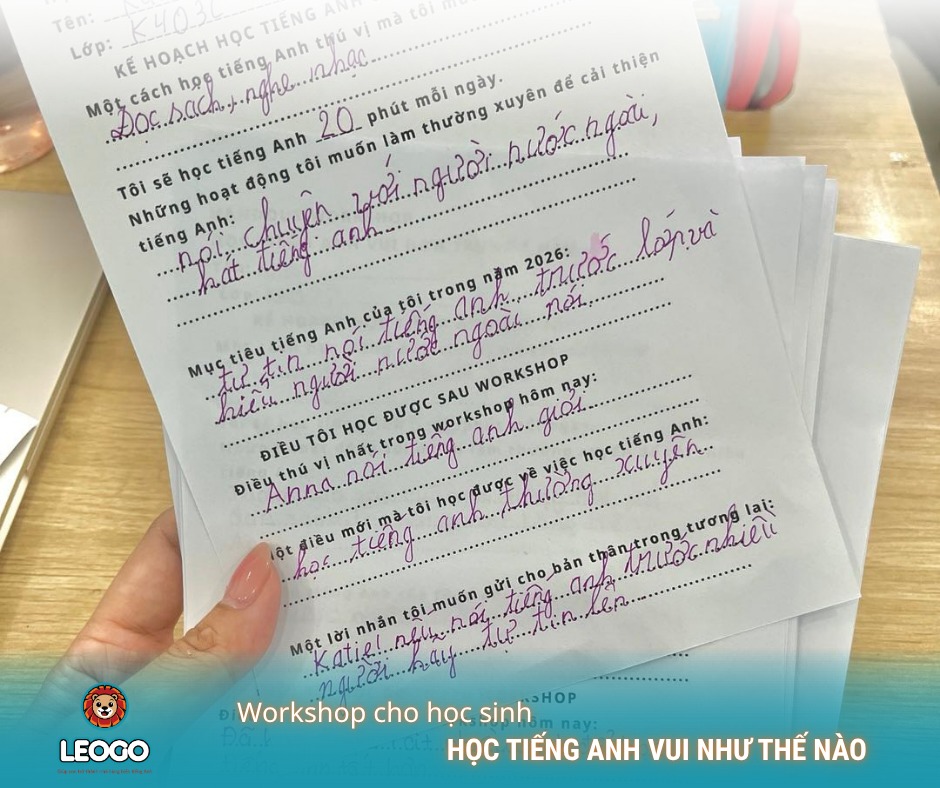 Tên:
Lớp: K4036
KẾ HOẠCH HỌC TIẾNG ANH
Một cách học tiếng Anh thú vị mà tôi muốn
Đọc sách, nghe nhạc
Tôi sẽ học tiếng Anh 20 phút mỗi ngày.
Những hoạt động tôi muốn làm thường xuyên để cải thiện
tiếng Anh:
nói chuyện với người nước ngoài,
hát tiếng anh
Mục tiêu tiếng Anh của tôi trong năm 2026:
tự tin nói tiếng anh trước lớp và
hiểu người nước ngoài nói.
ĐIỀU TÔI HỌC ĐƯỢC SAU WORKSHOP
Điều thú vị nhất trong workshop hôm nay:
Anna nói tiếng anh giỏi
một điều mới mà tôi học được về việc học tiếng Anh:
học tiếng anh thường xuyên
Một lời nhắn tôi muốn gửi cho bản thân trong tương lai:
Katie! nếu nói tiếng anh trước nhiều
người hãy tự tin lên
SHOP
workshop hôm nay:
Workshop cho học sinh
LEOGO
HỌC TIẾNG ANH VUI NHƯ THẾ NÀO